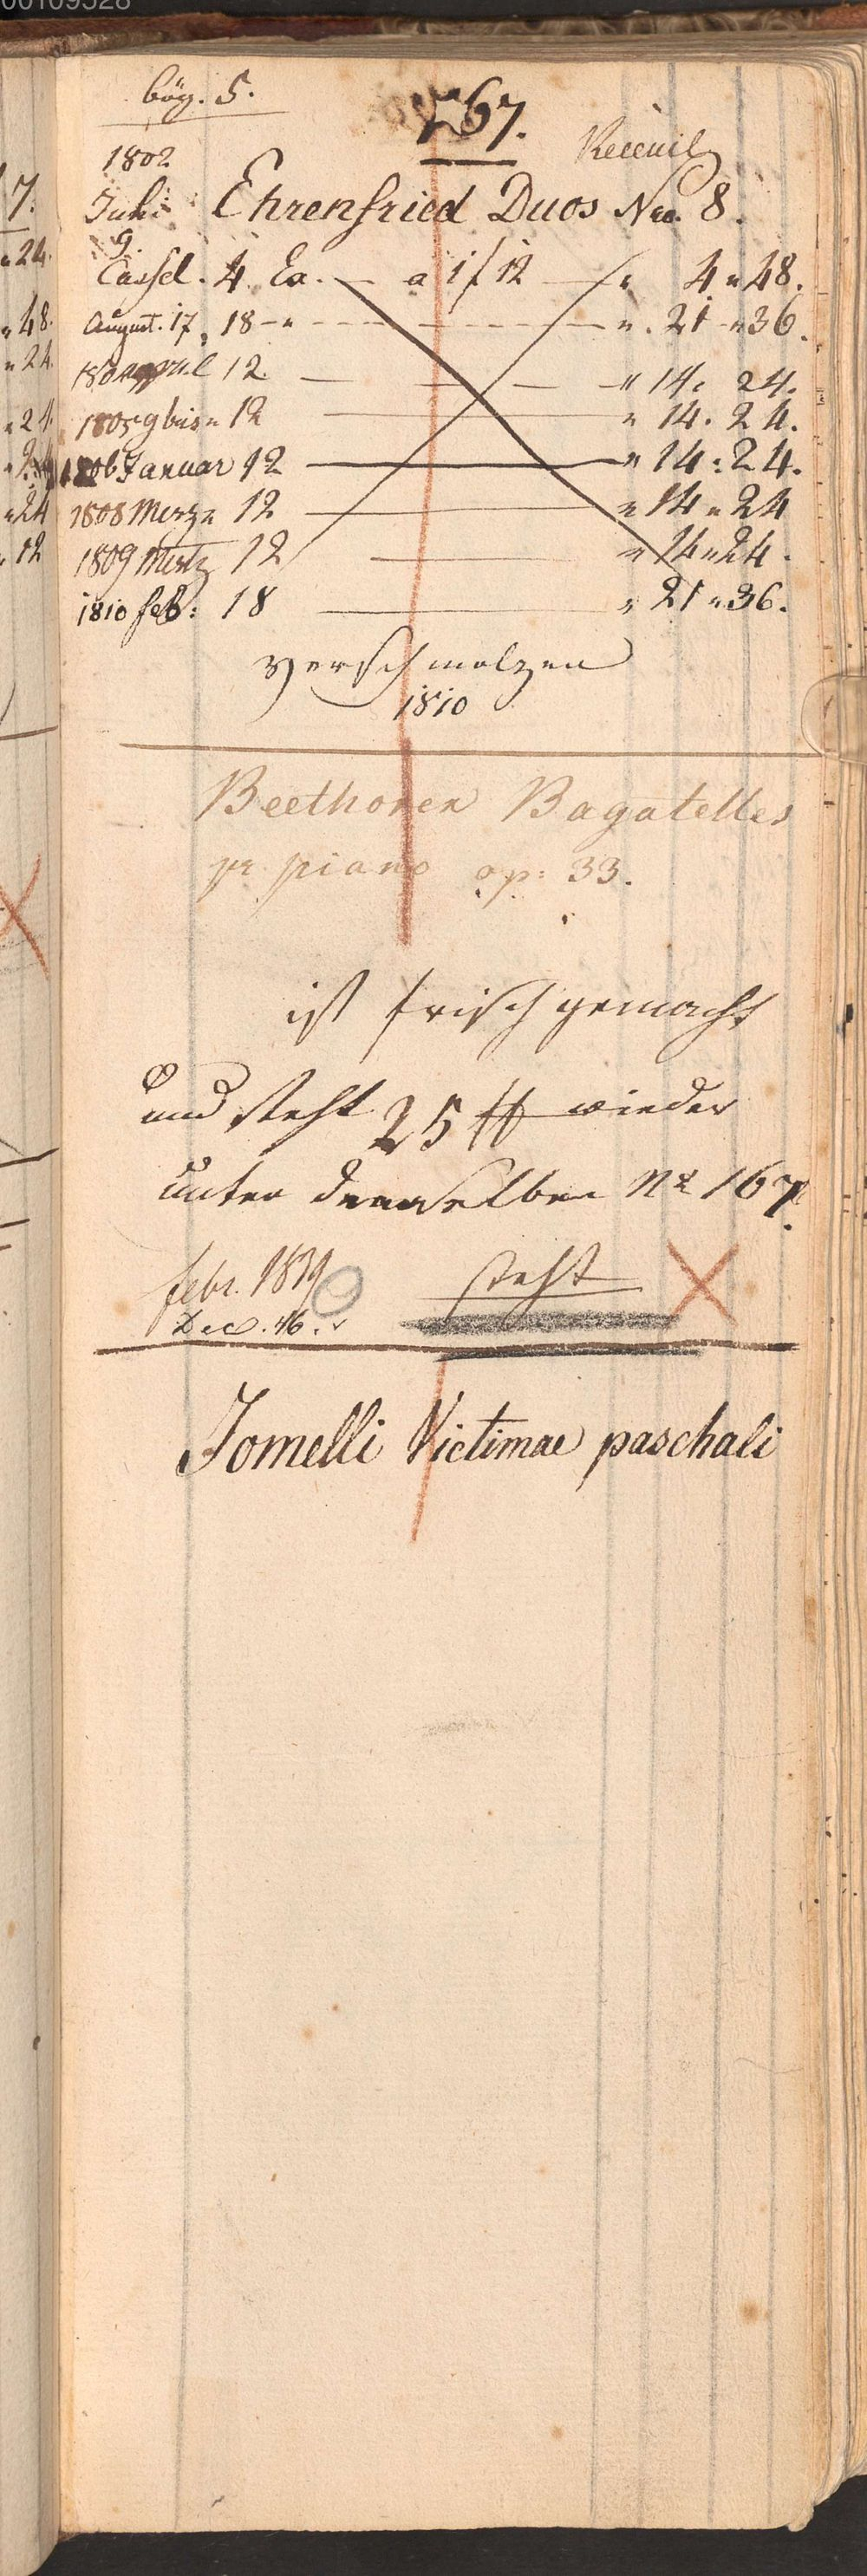 00109528
bög. 5.
167.
Receuil
1802
Juli Ehrenfried Duos Nro. 8.
9.
Cassel. 4 Ex. — a 1 f 12 — " 4 " 48.
August. 17, 18 — " — — — ". 21 " 36.
1804 april 12 — — — " 14. 24.
1805 9bris " 12 — " 14. 24.
1806 Januar 12 — " 14 : 24.
1808 Merz " 12 — " 14 " 24
1809 Mertz 12 — " 14 " 24.
1810 feb: 18 — " 21 " 36.
verschmolzen
1810
Beethoven Bagatelles
pr piano op: 33.
ist frisch gemacht
und steht 25 ℔ wieder
unter demselben No 167.
febr. 1839 steht
Dec. 46.
Jomelli Victimae paschali
7.
" 24.
" 48.
" 24
" 24
" 24
" 12